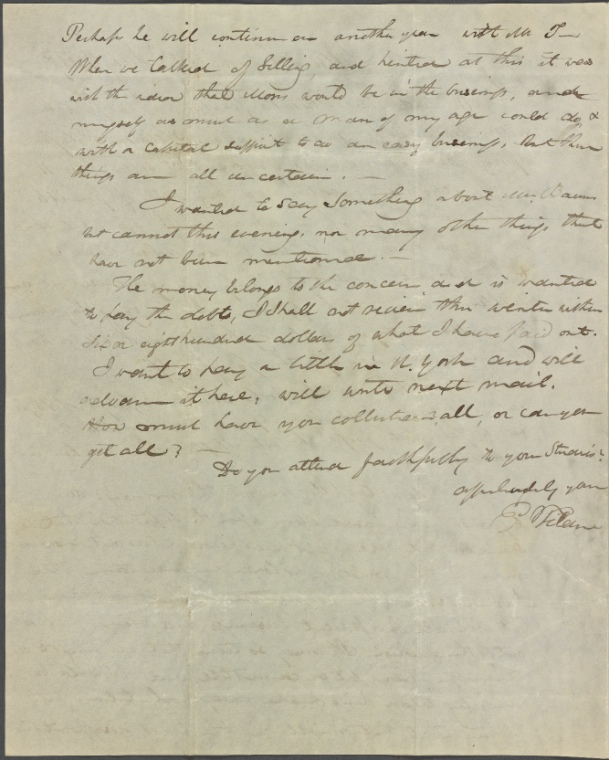 Perhaps he will continue on another year with Mr T—
When we talked of Selling and hinted at this it was
with the idea that would be in the business, and
myself as much as a man of my age could do, &
with a Capital sufficient to do an easy business, but these
things are all uncertain. —
I wanted to say Something about
but cannot this evening, nor many other things that
have not been mentioned. —
The money belongs to the concern and is wanted
to pay the debts, I Shall not receive this winter within
Six or eight hundred dollars of what I have paid out.
I want to pay a little in N. York and will
advance it here, will write next mail.
How much have you collected in all, or can you
get all? —
Do you attend faithfully to your Studies?
affectionately your